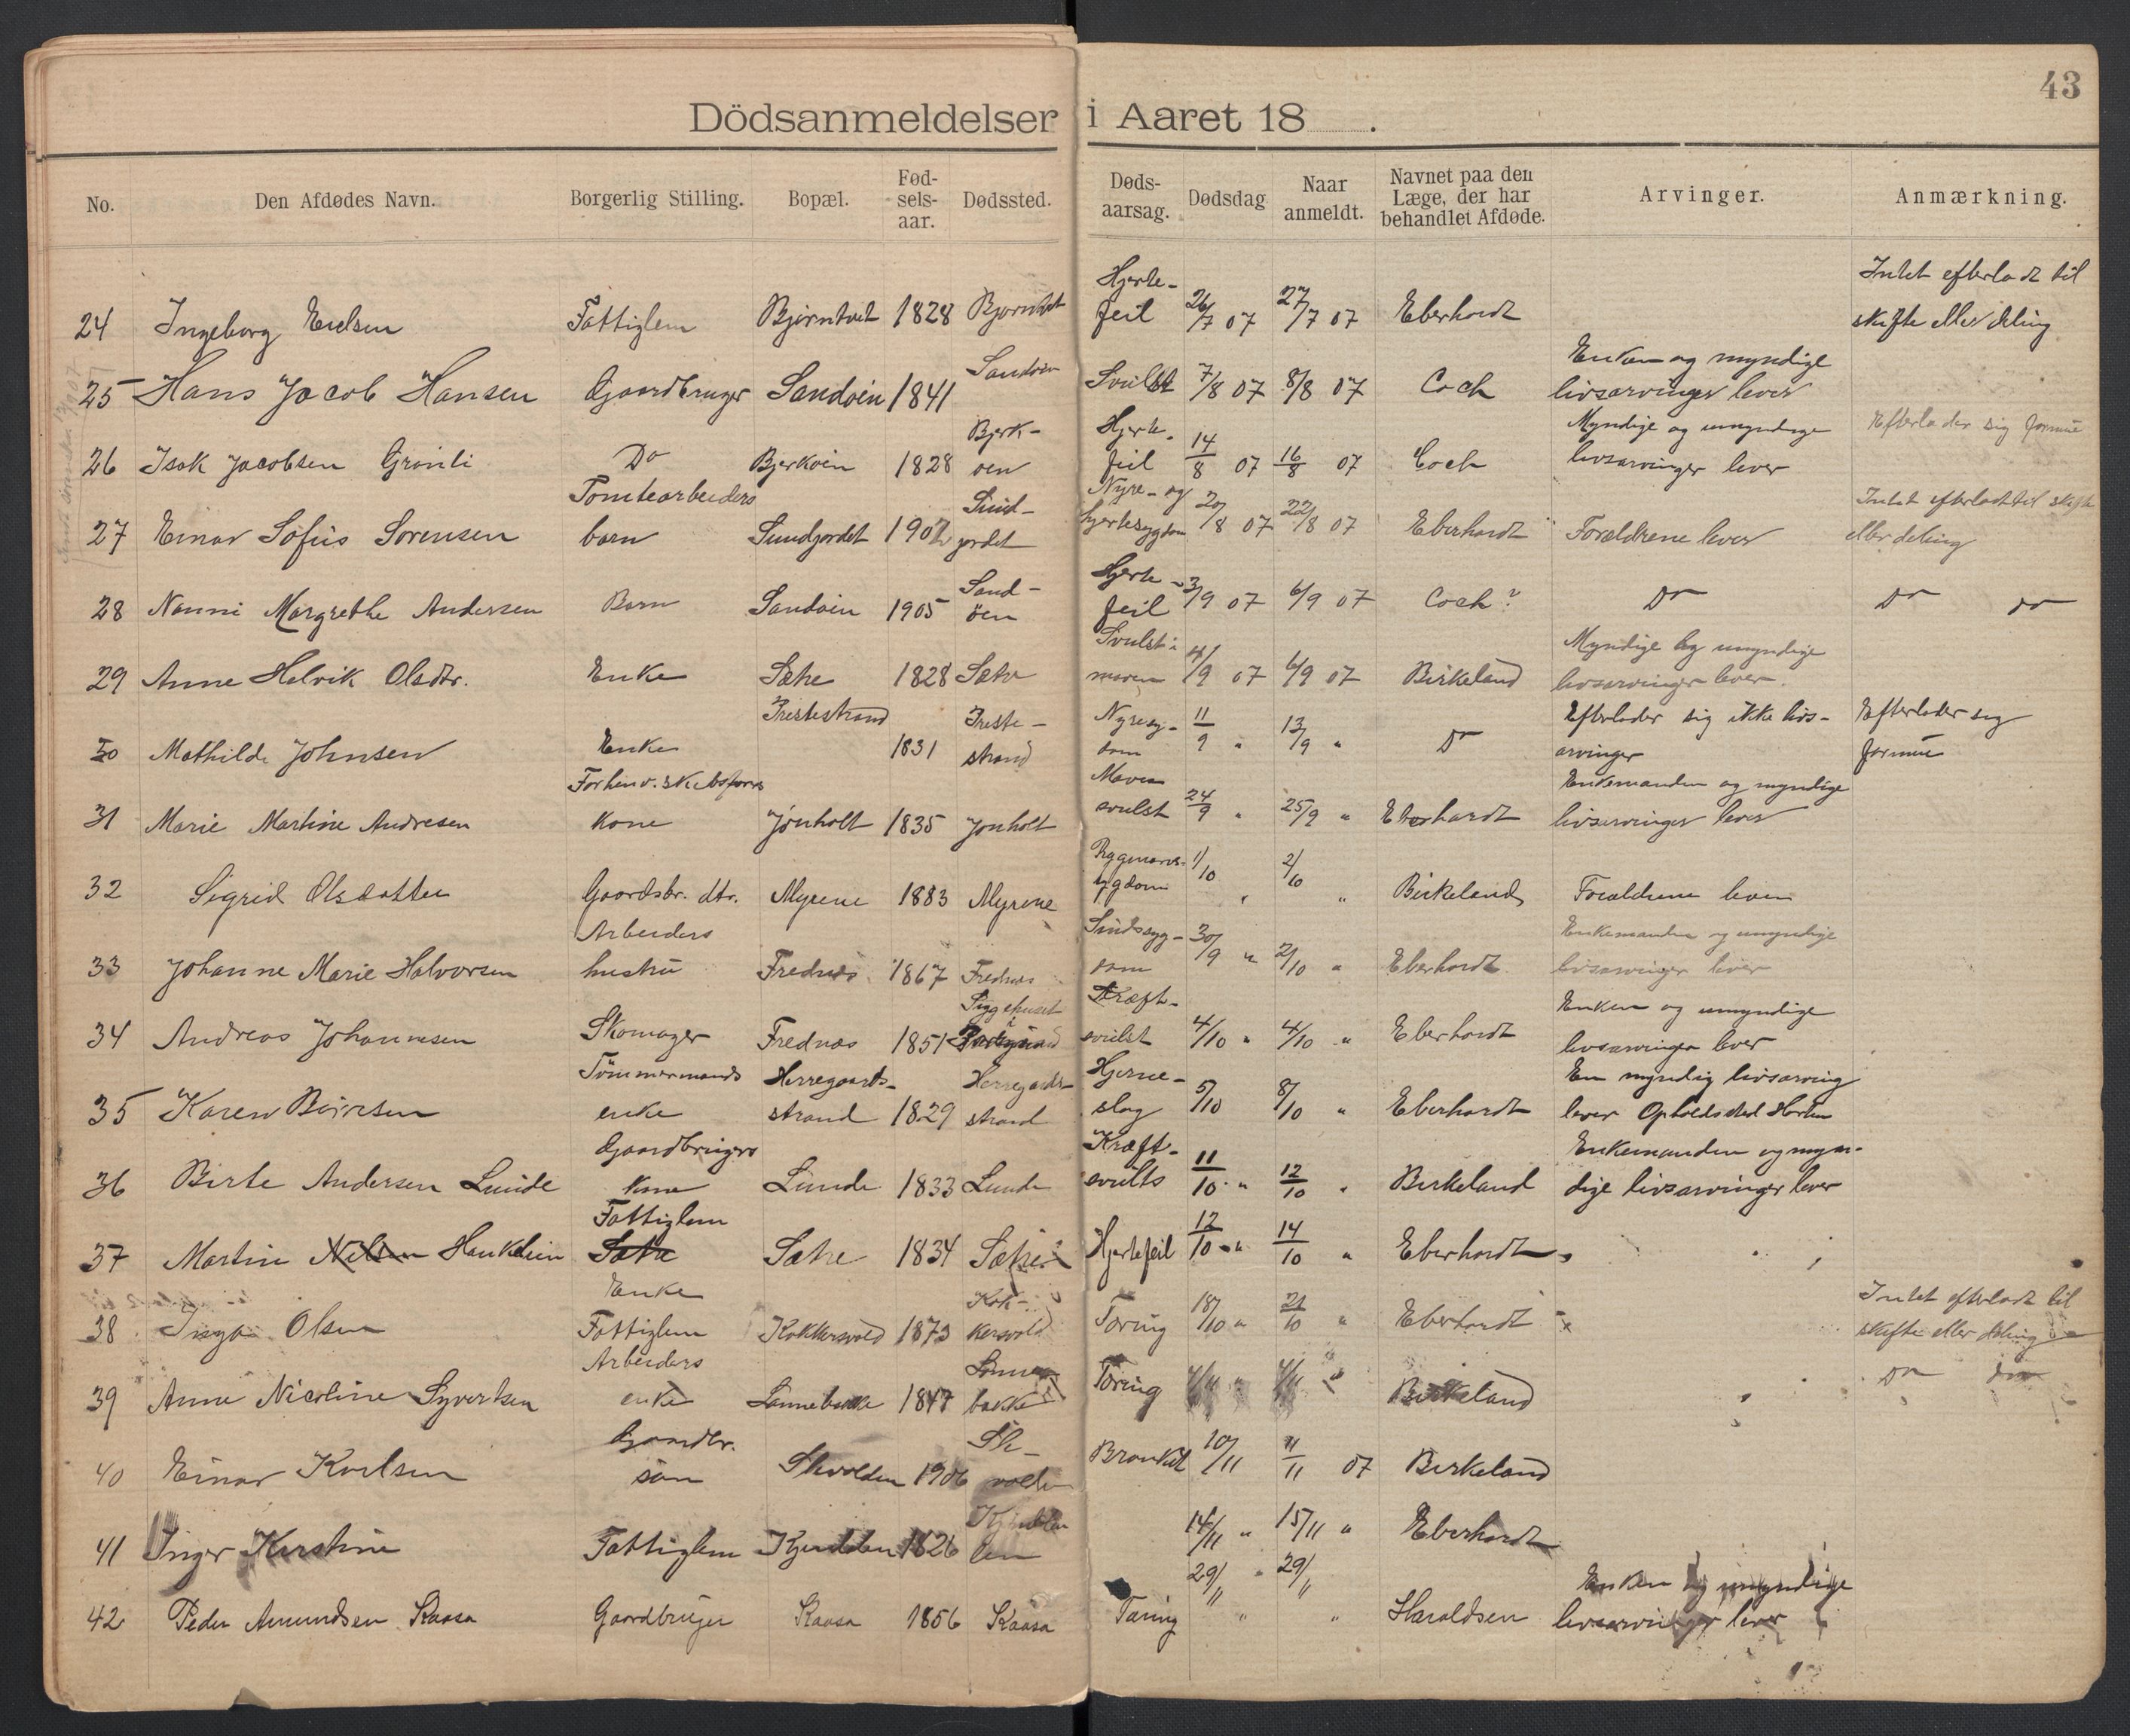 43
Dödsanmeldelser i Aaret 18 .
No. Den Afdødes Navn. Borgerlig Stilling. Bopæl. Fød-sels-aar. Dødssted. Døds-aarsag. Dødsdag Naar anmeldt. Navnet paa den Læge, der har behandlet Afdøde. Arvinger. Anmærkning.
24 Ingeborg Fattiglem Bjørntvet 1828 Bjørntvet Hjerte-feil 26/7 07 27/7 07 Eberhardt Intet efterladt til skifte eller deling
25 Hans Jacob Hansen Gaardbruger Sandøen 1841 Sandøen Svulst 7/8 07 8/8 07 Coch Enken og myndige livsarvinger lever
26 Isak Jacobsen Grønli Do Bjerkøen 1828 Bjerk-øen Hjerte-feil 14/8 07 16/8 07 Coch Myndige og umyndige livsarvinger lever Efterlader sig formue
27 Einar Sofus Sørensen Tomtearbeiders barn Sundjordet 1907 Sund-jordet Nyre- og hjertesygdom 20/8 07 22/8 07 Eberhardt Forældrene lever Intet efterladt til skifte eller deling
28 Nanni Margrethe Andersen Barn Sandøen 1905 Sand-öen Hjerte-feil 3/9 07 6/9 07 Coch? Do Do do
29 Anne Helvik Olsdtr. Enke Sætre 1828 Sætre Svulst i maven 4/9 07 6/9 07 Birkeland Myndige og umyndige livsarvinger lever.
30 Mathilde Johnsen Enke Trestestrand 1831 Treste-strand Nyresyg-dom 11/9 " 13/9 " Do Efterlader sig ikke livs-arvinger Efterlader sig formue
31 Marie Martine Andresen Forhenv. skibsførers kone Jønholt 1835 Jønholt Mave svulst 24/9 " 25/9 " Eberhardt Enkemanden og myndige livsarvinger lever
32 Sigrid Olsdatter Gaardsbr. dtr. Myrene 1883 Myrene Rygmarvs-sygdom 1/10 " 2/10 " Birkeland Forældrene lever
33 Johanne Marie Halvorsen Arbeiders hustru Frednæs 1867 Frednæs Sindssyg-dom 30/9 " 2/10 " Eberhardt Enkemanden og umyndige livsarvinger lever
34 Andreas Johannesen Skomager Frednæs 1851 Sygehuset i Porsgrund Kræft-svulst 4/10 " 4/10 " Eberhardt Enken og umyndige livsarvinger lever
35 Karen Tömmermands enke Herregaards-strand 1829 Herregards-strand Hjerne-slag 5/10 8/10 " Eberhardt En myndig livsarving lever Opholdssted Horten
36 Birte Andersen Lunde Gaardbrugers kone Lunde 1833 Lunde Kræft-svults 11/10 " 12/10 " Birkeland Enkemanden og myn-dige livsarvinger lever
37 Martin Nilsen Hauklien Fattiglem Sætre Sætre 1834 Sætre Hjertefeil 12/10 " 14/10 " Eberhardt
38 Inga Olsen Enke Fattiglem Kokkersvold 1873 Kok-kersvold Tæring 18/10 " 21/10 " Eberhardt Intet efterladt til skifte eller deling
39 Anne Nicoline Syvertsen Arbeiders enke Lønnebakke 1847 Lønne-bakke Tæring Birkeland Do do
40 Einar Karlsen Gaardbr. søn Skvolden 1906 Sk-volden Bronkit 10/11 11/11 07 Birkeland
41 Inger Kirstine Fattiglem 1826 14/11 " 15/11 " Eberhardt
42 Peder Amundsen Kaasa Gaardbruger Kaasa 1856 Kaasa Tæring 29/11 " 29/11 " Haraldsen Enken og umyndige livsarvinger lever